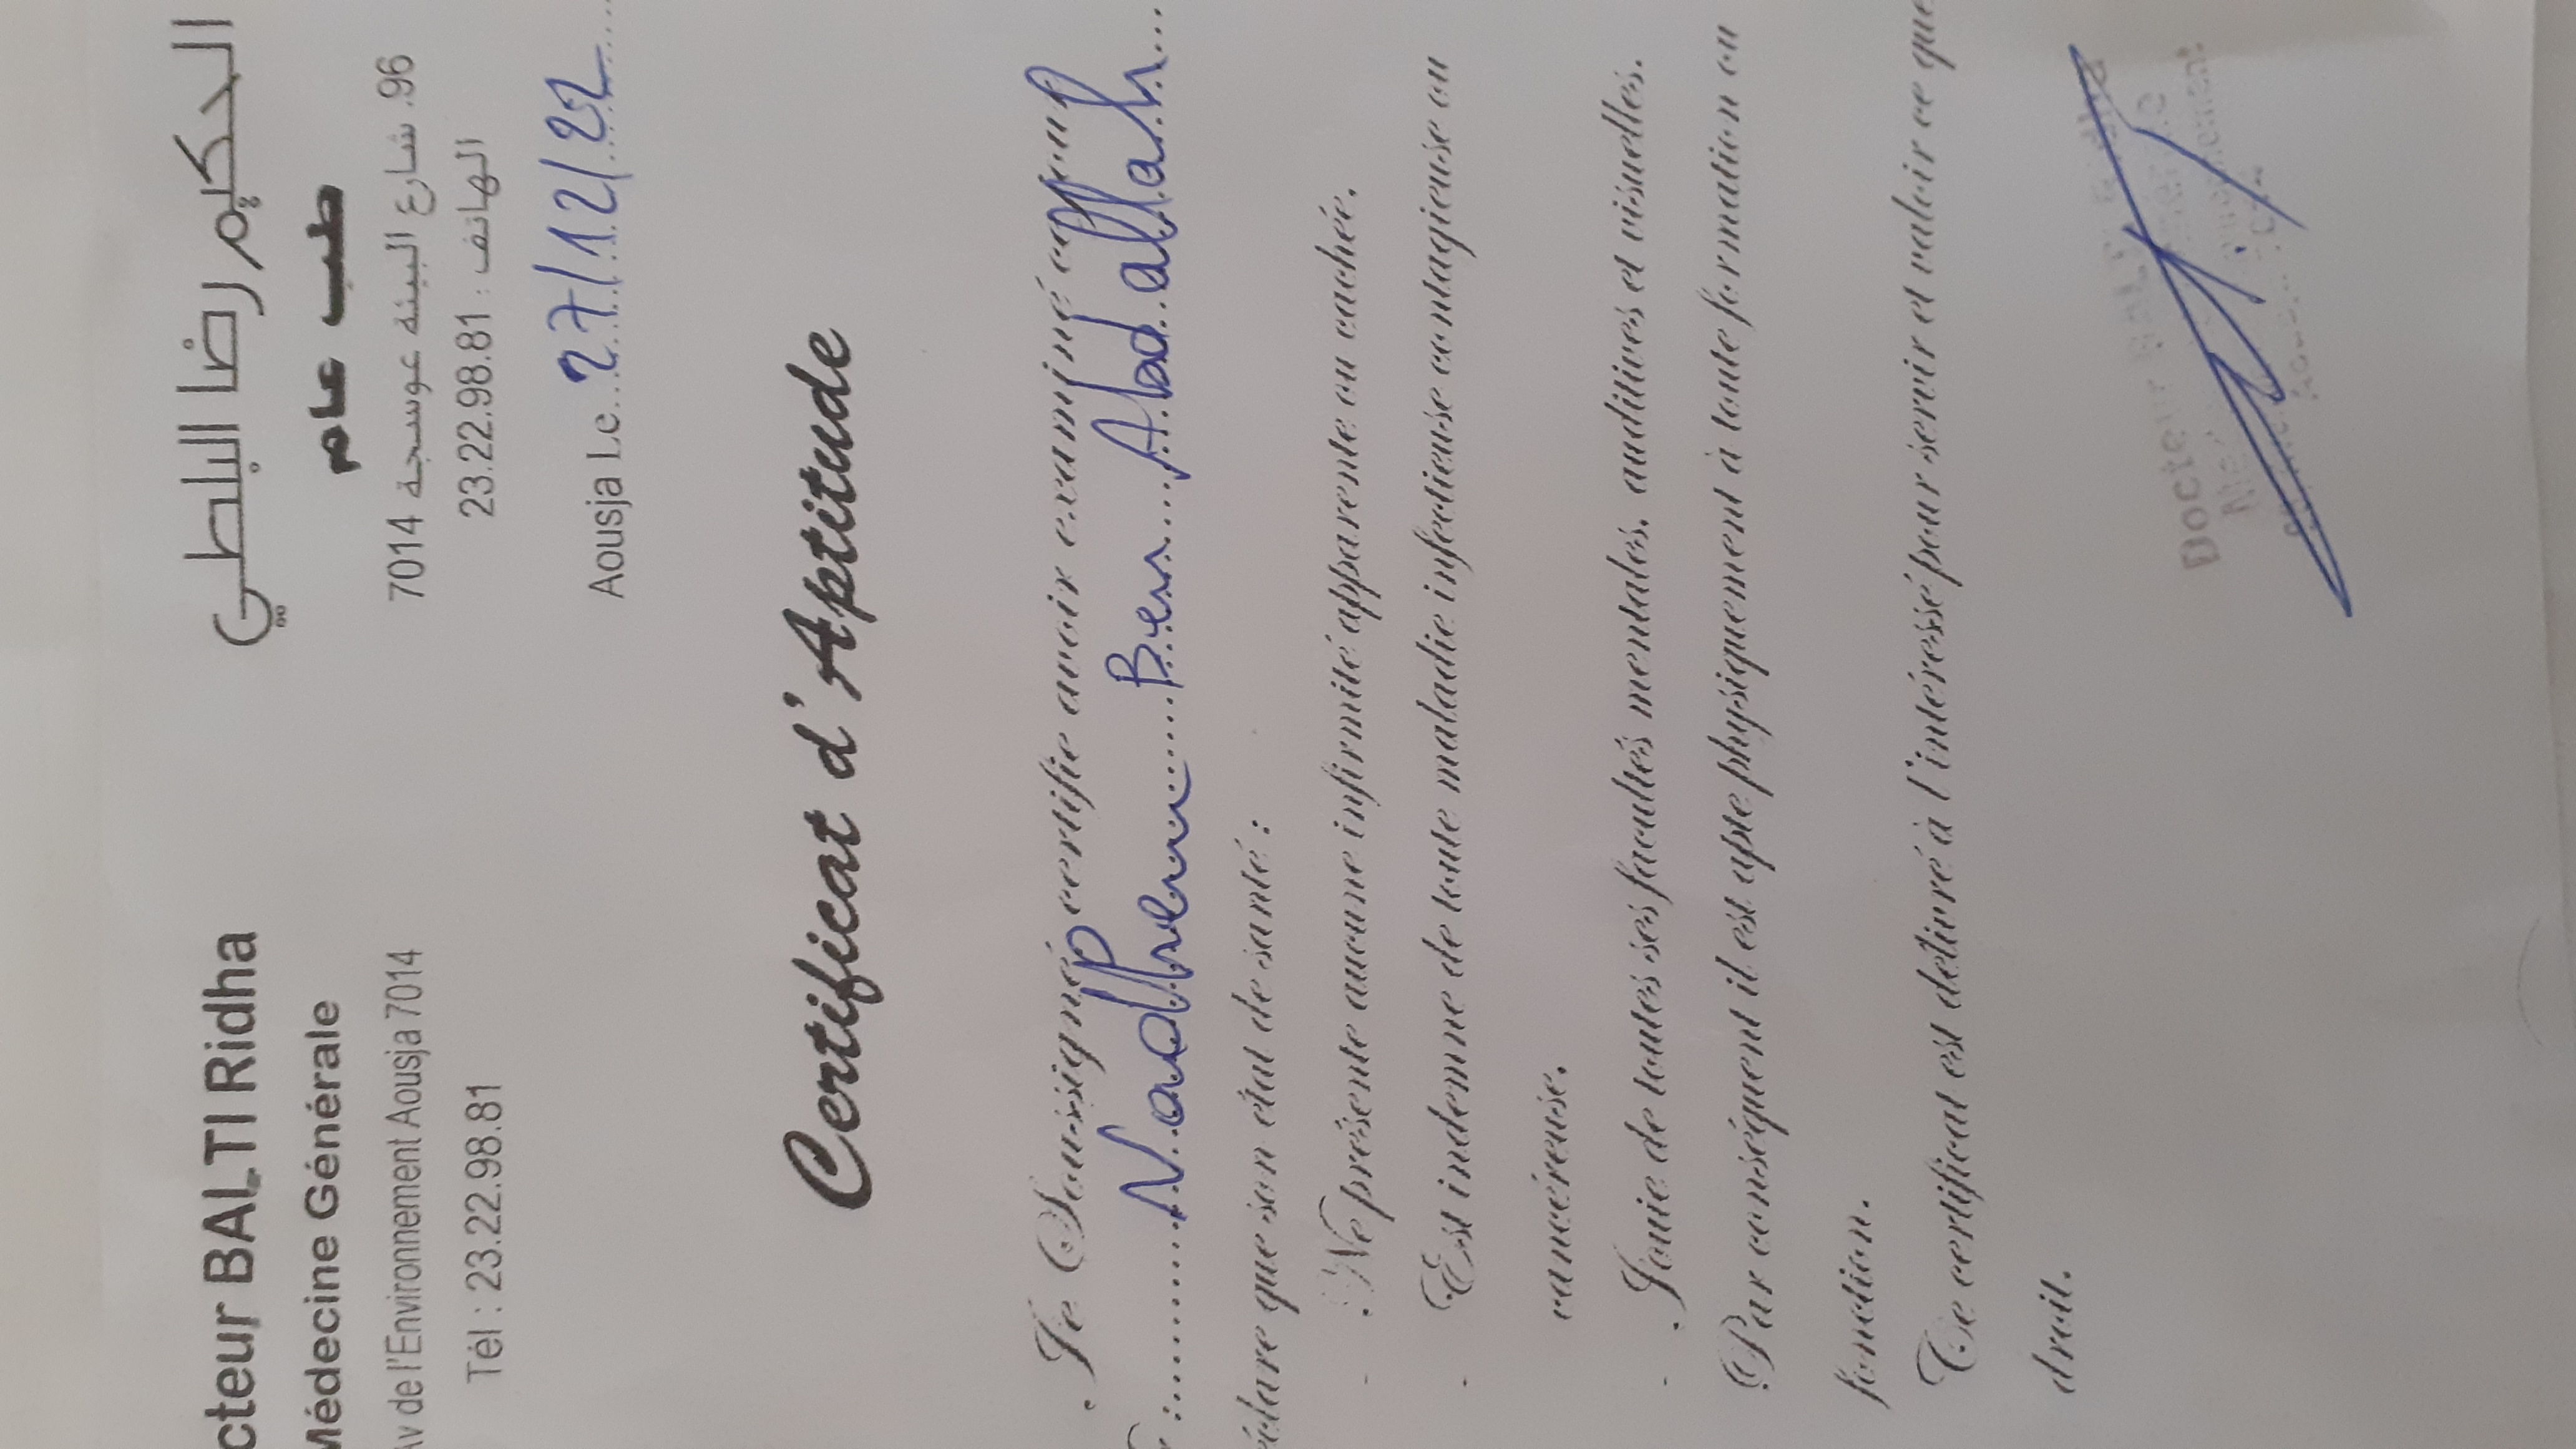 cteur BALTI Ridha
Médecine Générale
Av de l'Environnement Aousja 7014
Tél : 23.22.98.81
الحكيم رضا البلطي
طب عام
96. شارع البيئة عوسجة 7014
الهاتف : 23.22.98.81
Aousja Le 27/12/22
Certificat d'Aptitude
Je Soussigné certifie avoir examiné ce jour
Nadhem Ben Abdallah
éclare que son état de santé :
- Ne présente aucune infirmité apparente ou cachée.
- Est indemne de toute maladie infectieuse contagieuse ou
cancéreuse.
- Jouie de toutes ses facultés mentales, auditives et visuelles.
Par conséquent il est apte physiquement à toute formation ou
fonction.
Ce certificat est délivré à l'intéressé pour servir et valoir ce que
droit.
Docteur